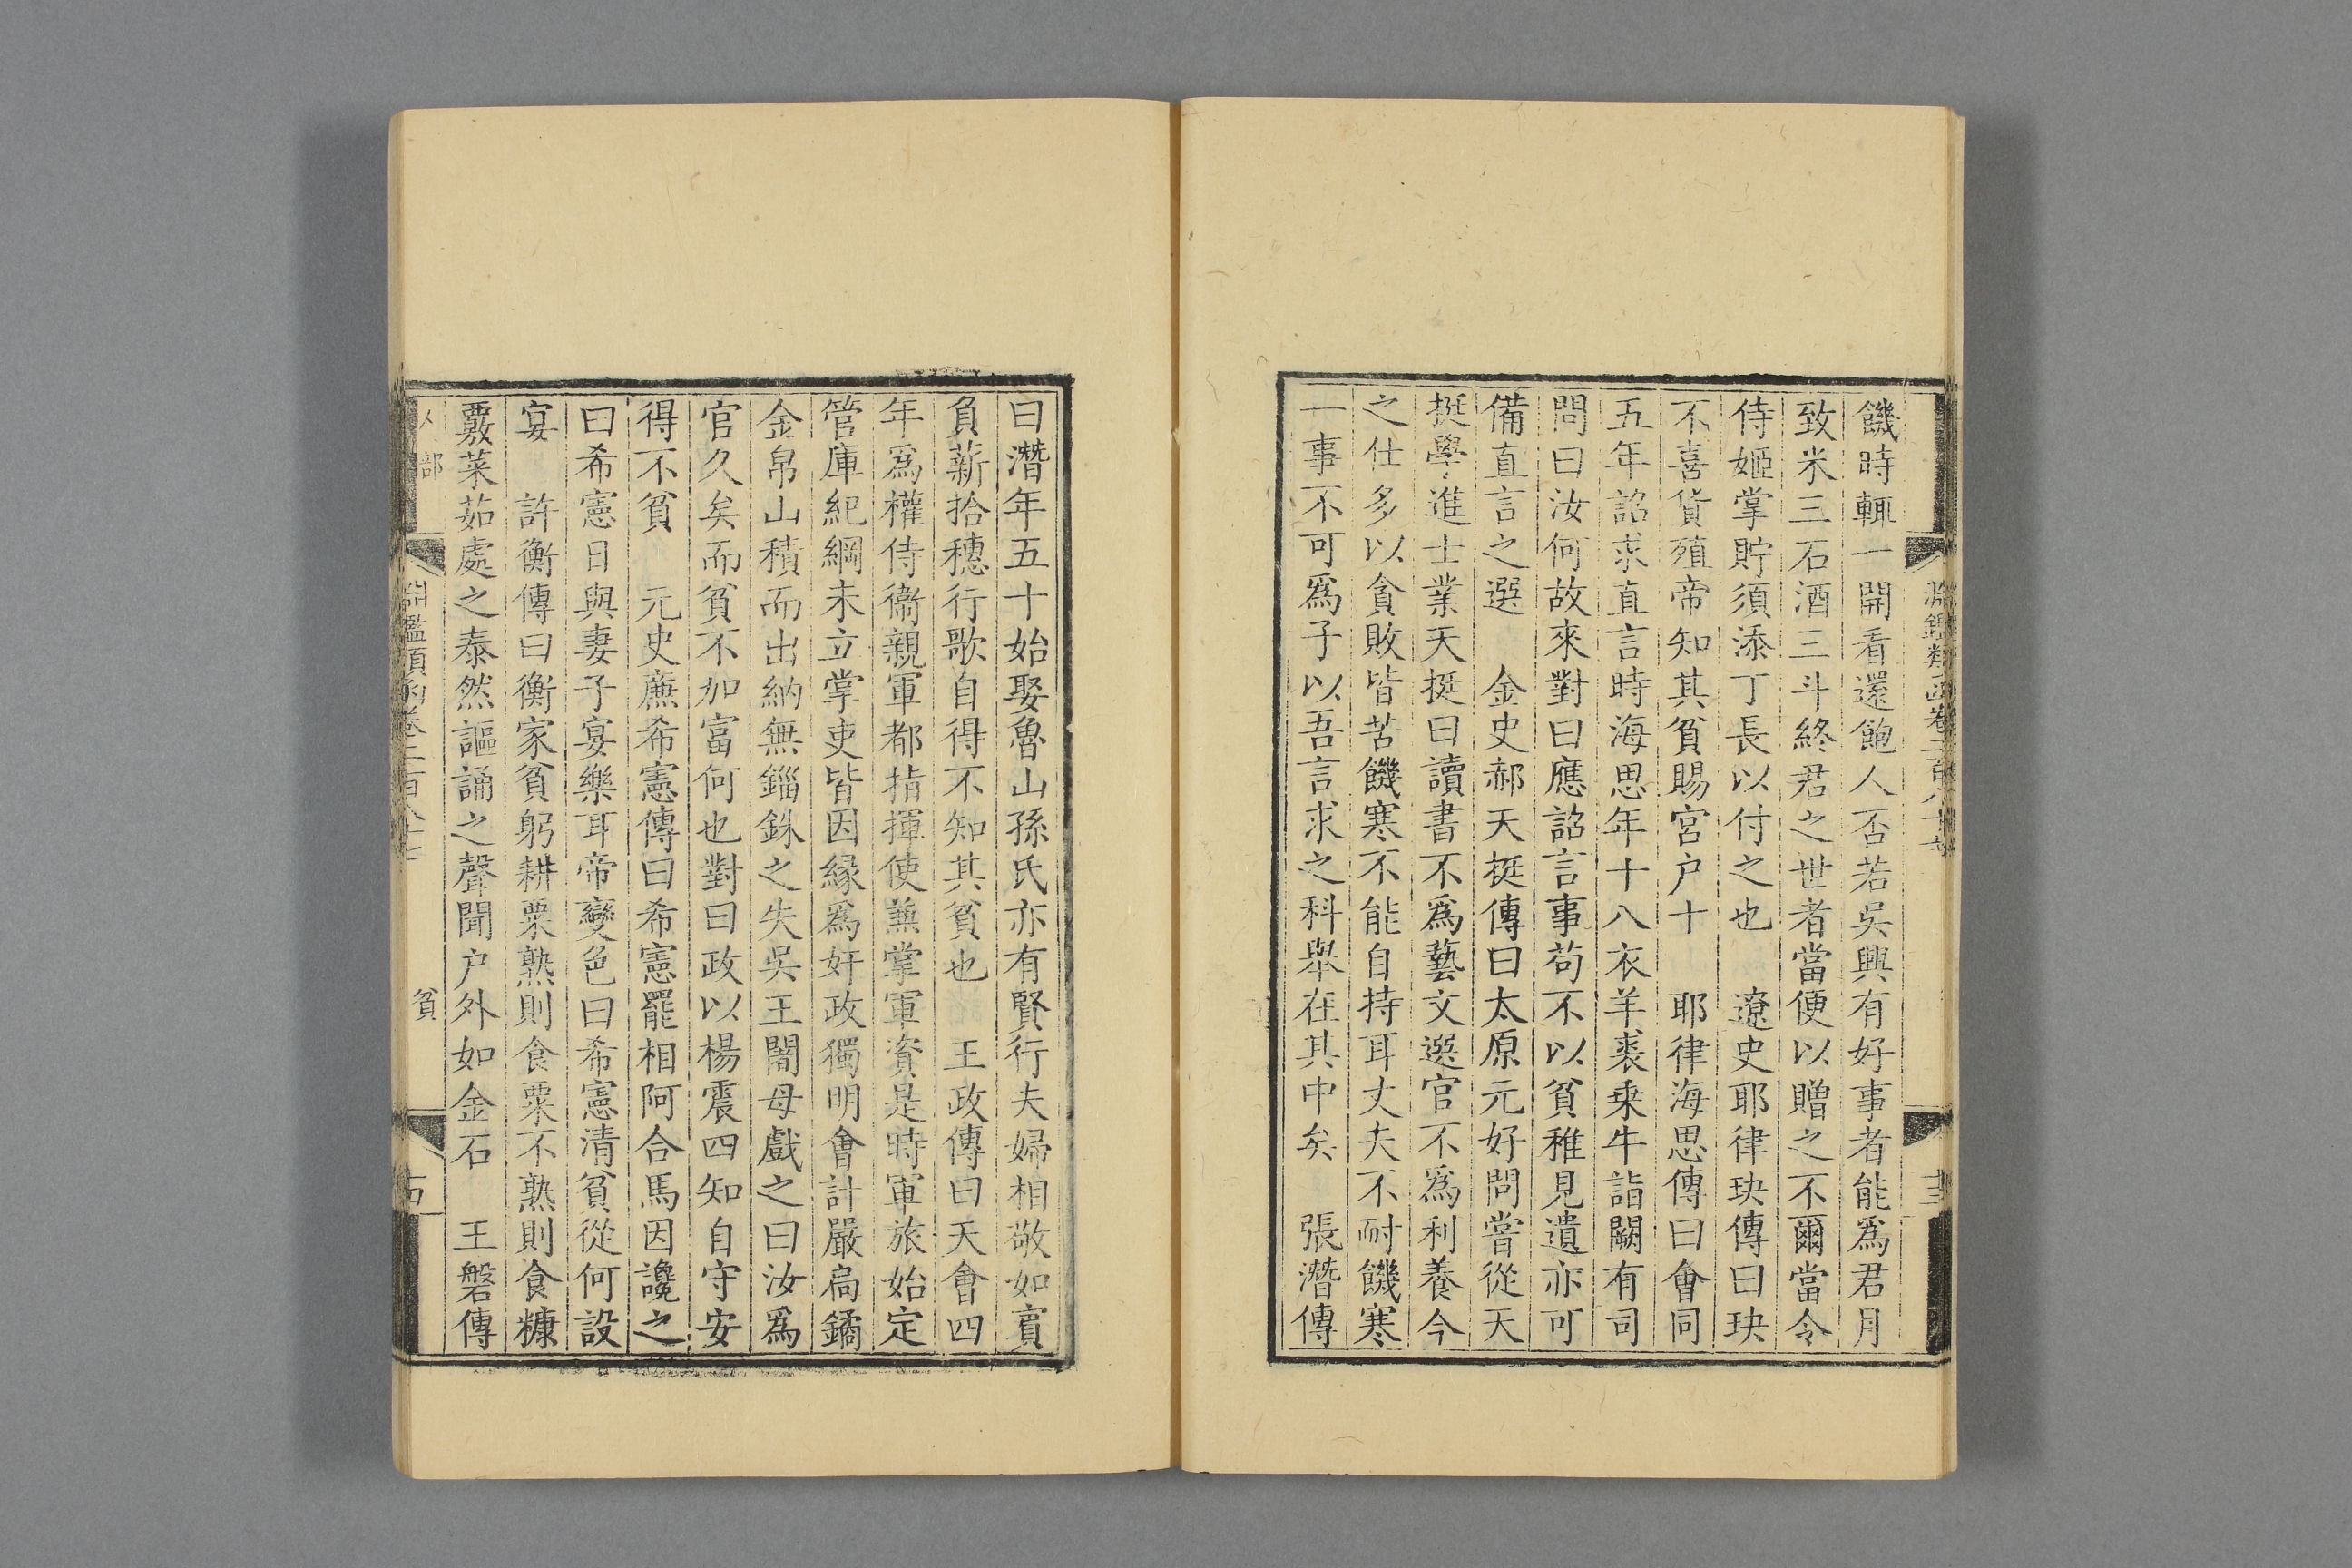 淵鑑類函卷二百八十七
饑時輒一開看還飽人否若吳興有好事者能爲君月
致米三石酒三斗終君之世者當便以贈之不爾當令
侍姬掌貯須添丁長以付之也 遼史耶律玦傳曰玦
不喜貨殖帝知其貧賜宮户十 耶律海思傳曰會同
五年詔求直言時海思年十八衣羊裘乗牛詣闕有司
問曰汝何故來對曰應詔言事苟不以貧稚見遺亦可
備直言之選 金史郝天挺傳曰太原元好問嘗從天
挺學進士業天挺曰讀書不爲藝文選官不爲利養今
之仕多以貪敗皆苦饑寒不能自持耳丈夫不耐饑寒
一事不可爲子以吾言求之科舉在其中矣 張潛傳
曰潛年五十始娶魯山孫氏亦有賢行夫婦相敬如賓
負薪拾穗行歌自得不知其貧也 王政傳曰天會四
年爲權侍衞親軍都指揮使兼掌軍資是時軍旅始定
管庫紀綱未立掌吏皆因緣爲奸政獨明會計嚴扃鐍
金帛山積而出納無錙銖之失吳王闍母戲之曰汝爲
官久矣而貧不加富何也對曰政以楊震四知自守安
得不貧 元史廉希憲傳曰希憲罷相阿合馬因讒之
曰希憲日與妻子宴樂耳帝變色曰希憲清貧從何設
宴 許衡傳曰衡家貧躬耕粟熟則食粟不熟則食糠
覈菜茹處之泰然謳誦之聲聞户外如金石 王磐傳
人部
淵鑑類函卷二百八十七
貧